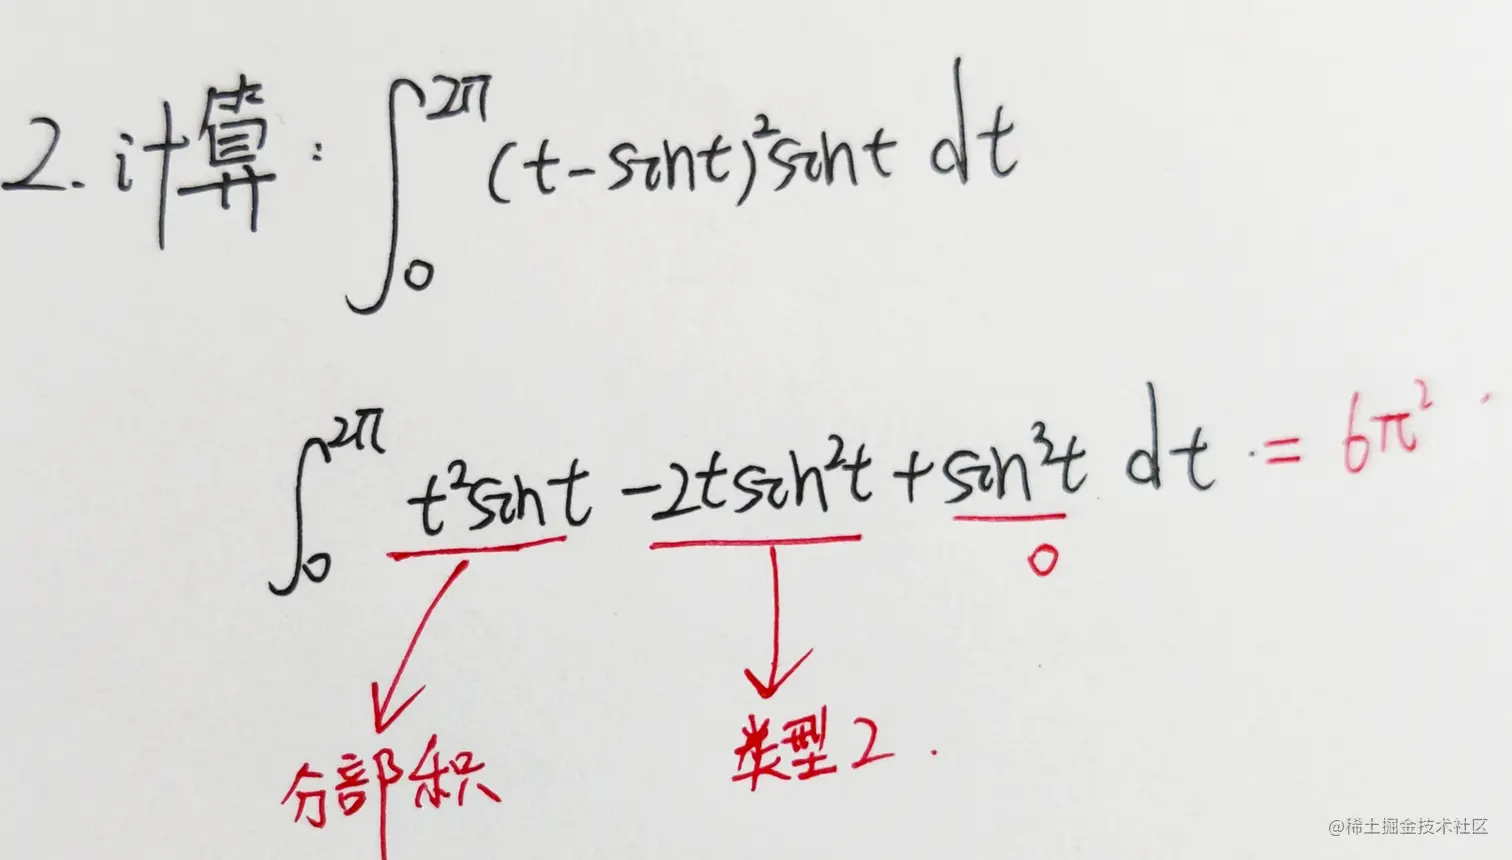 2. 计算: ∫₀^{2π} (t-sint)²sint dt
∫₀^{2π} t²sint -2tsin²t + sin³t dt = 6π²
0
分部积 类型2.
@稀土掘金技术社区